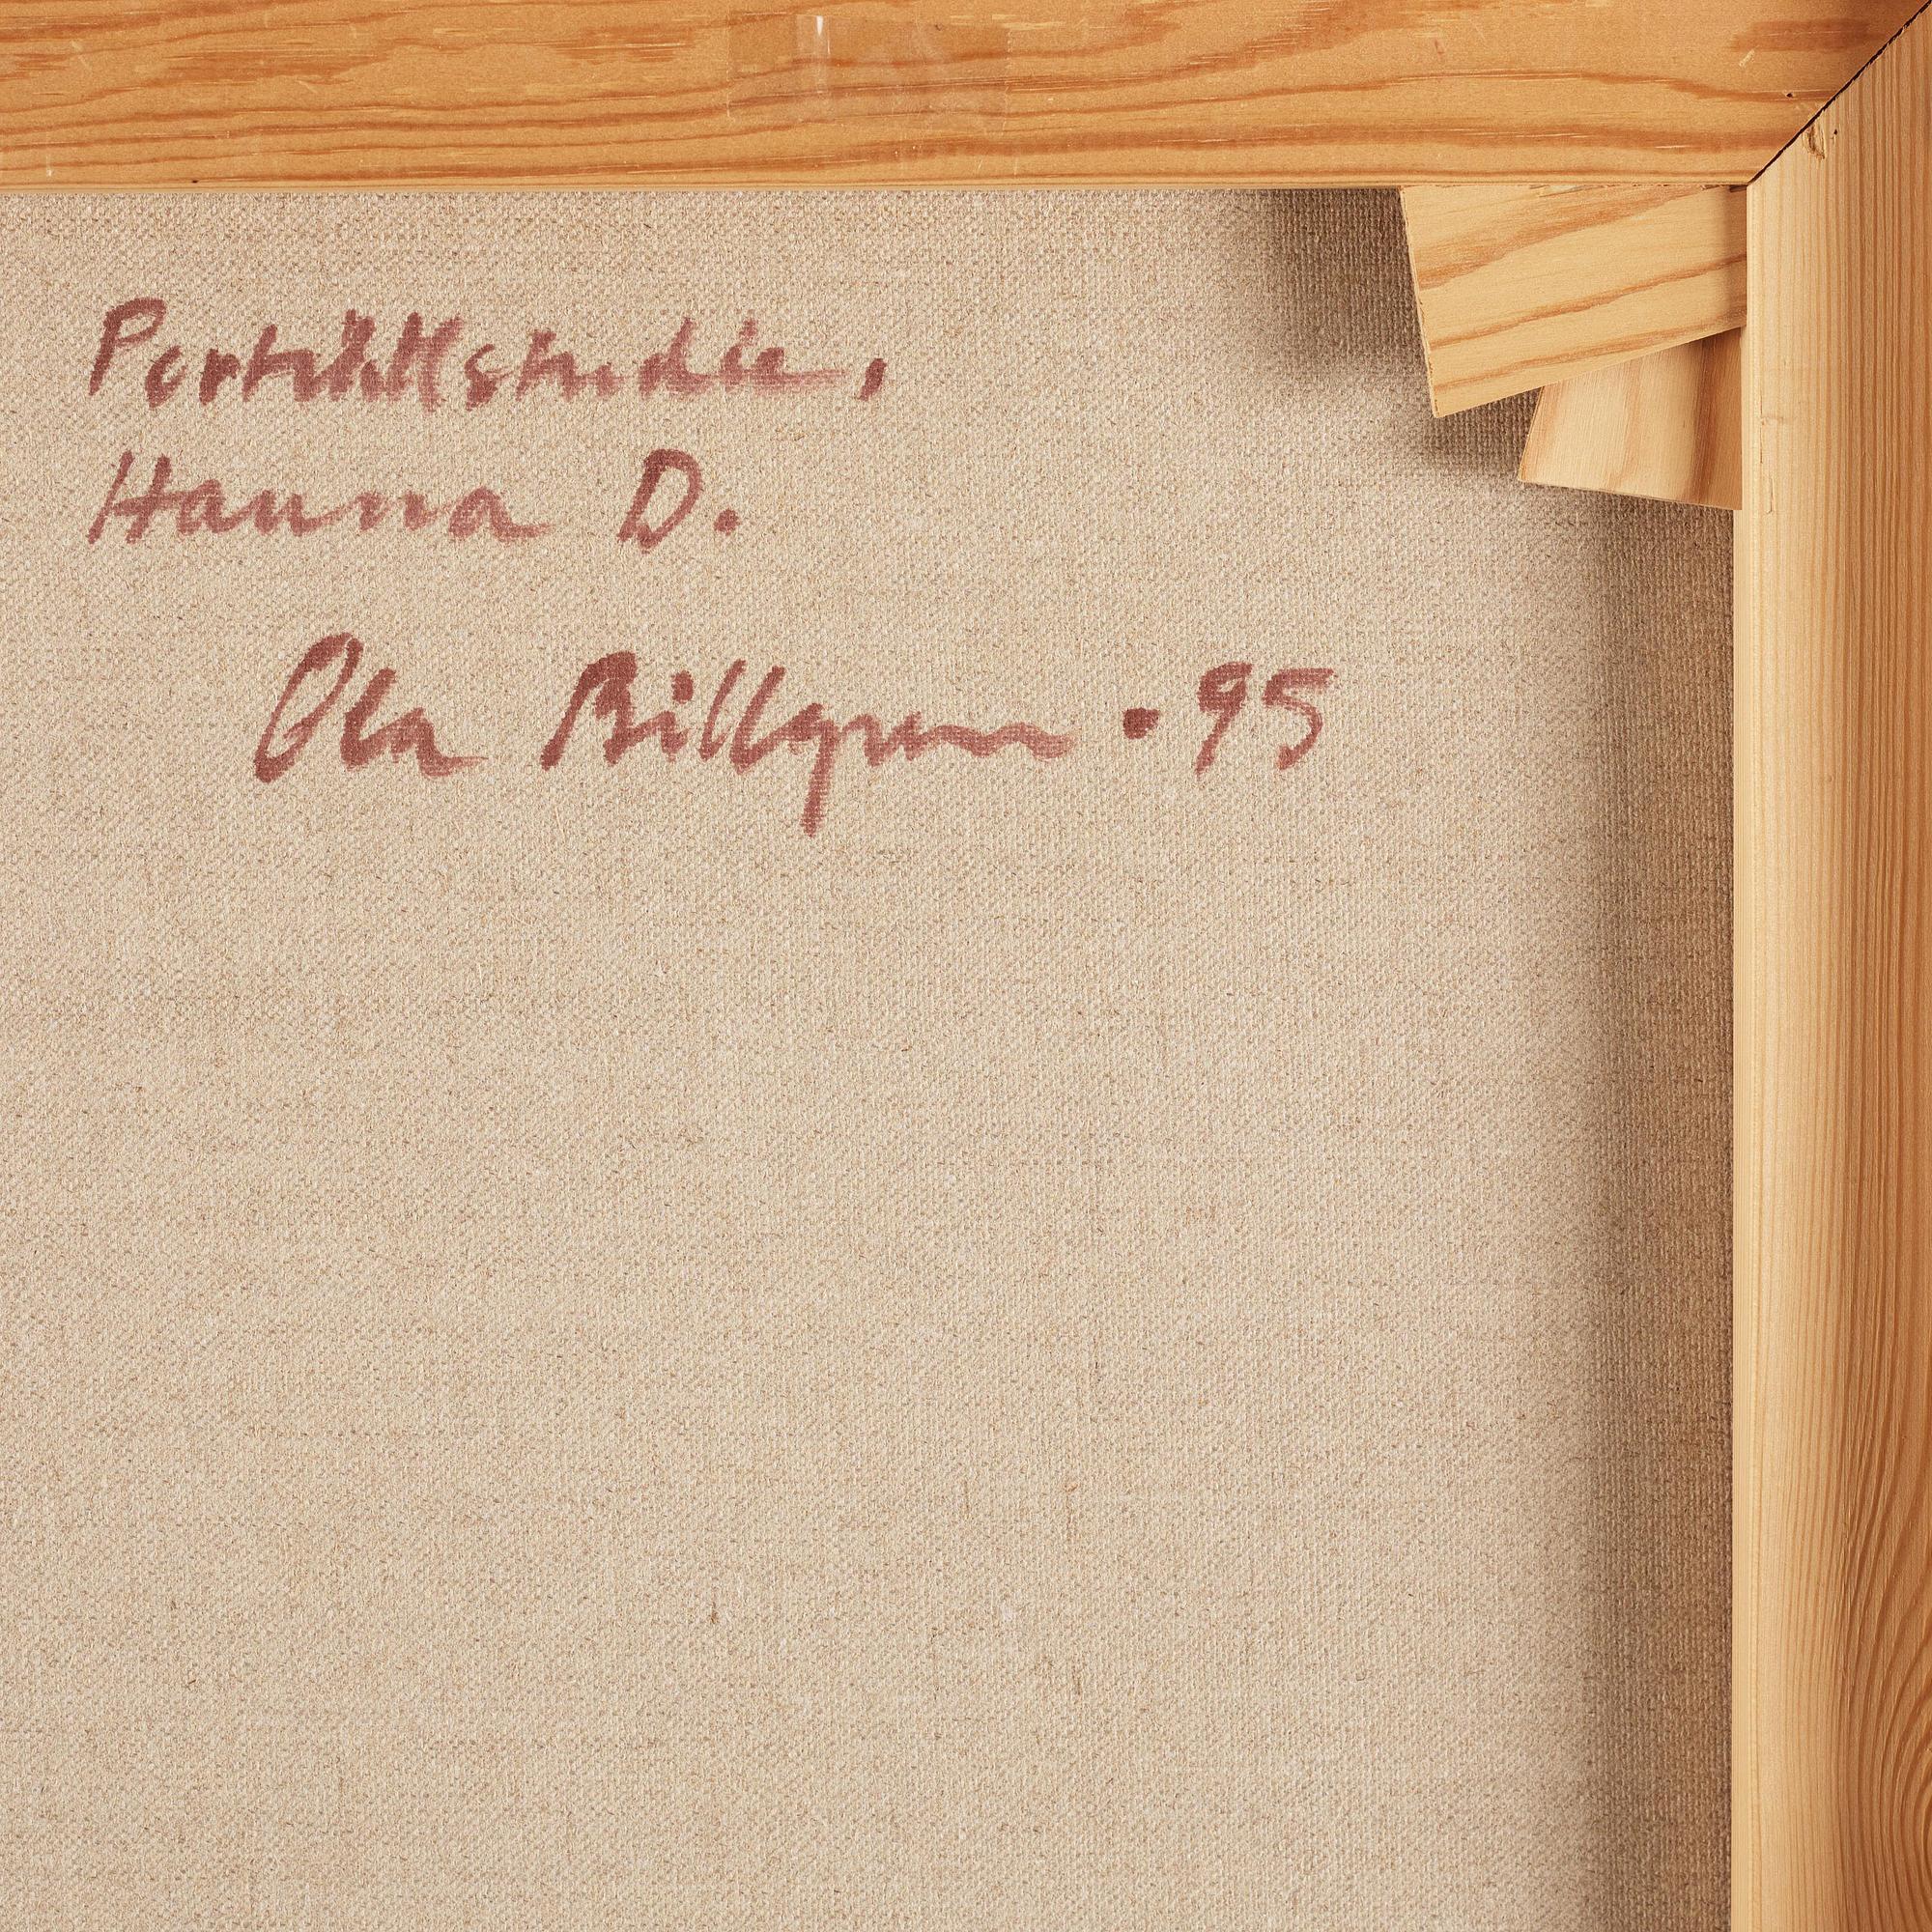 Porträttstudie,
Hanna D.
Ola Billgren · 95